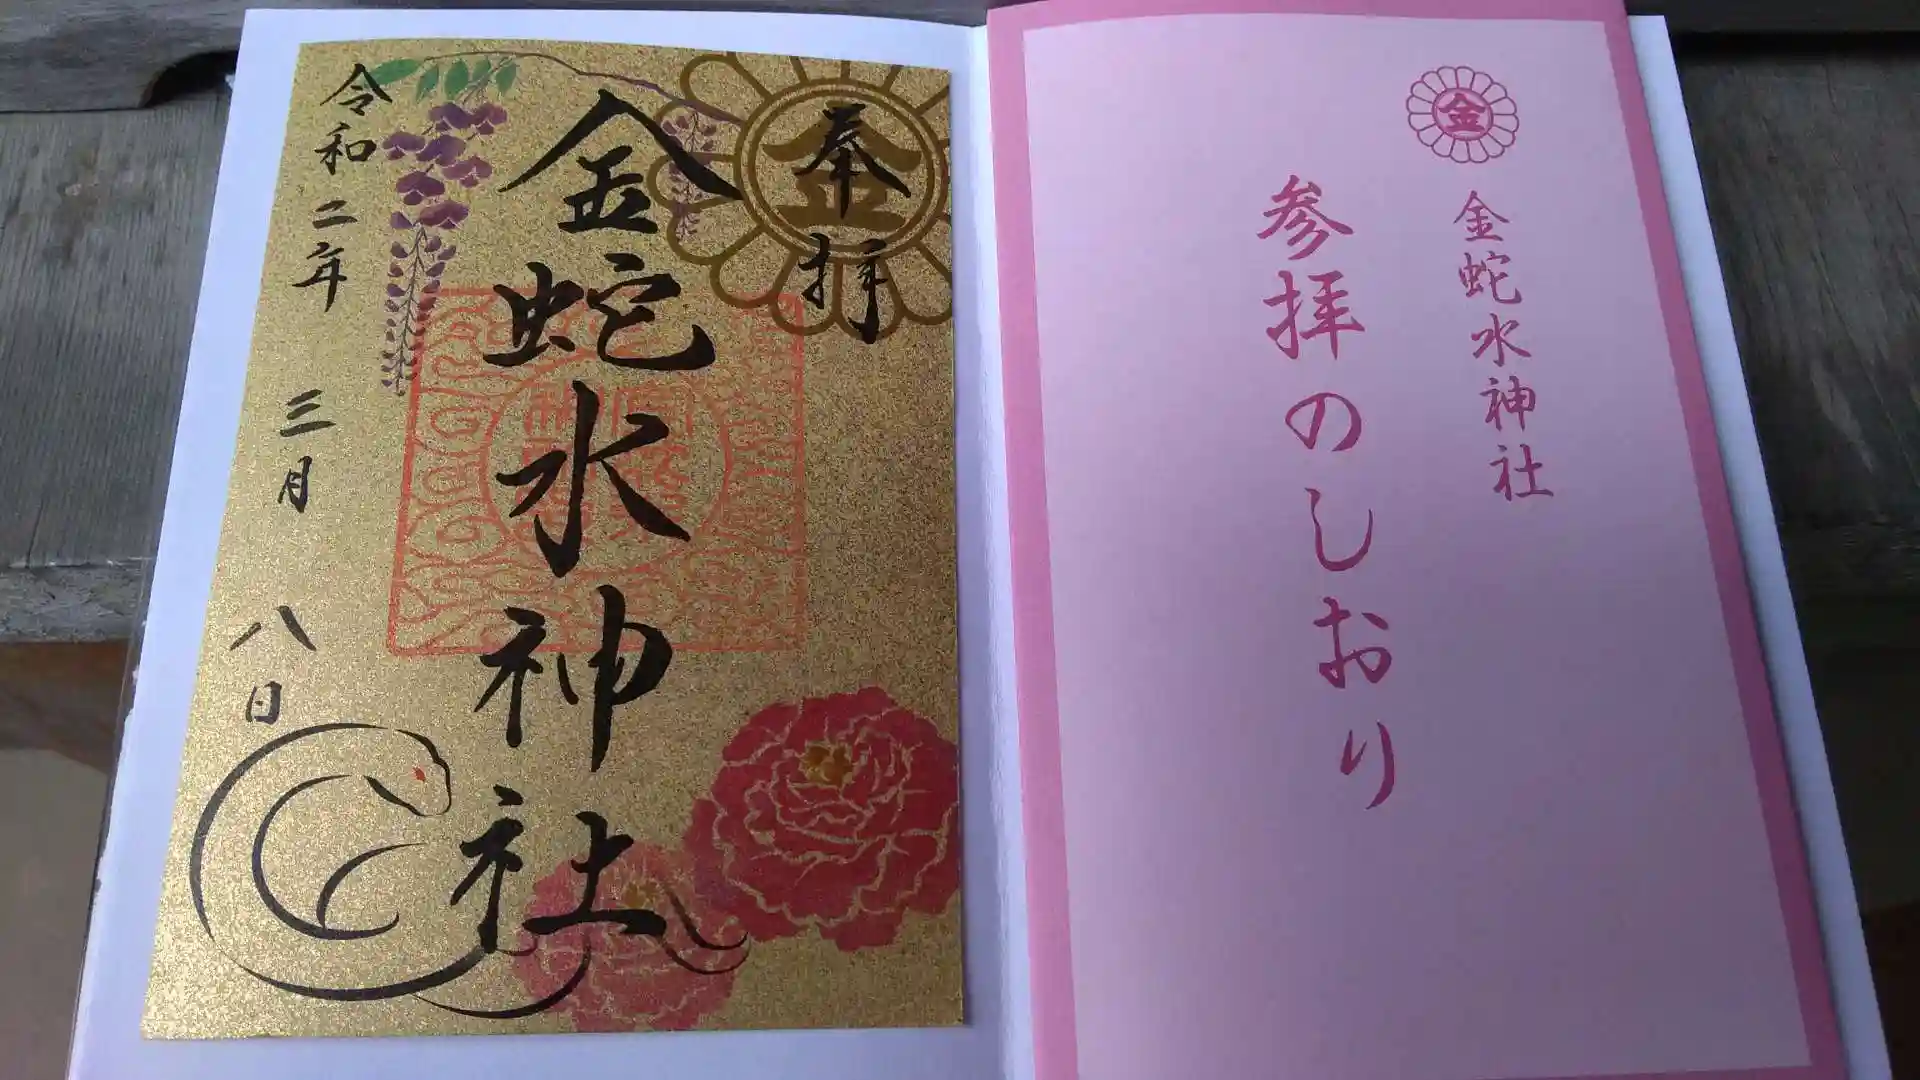 金
金蛇水神社
参拝のしおり
金
奉拝
金蛇水神社
令和二年 三月 八日